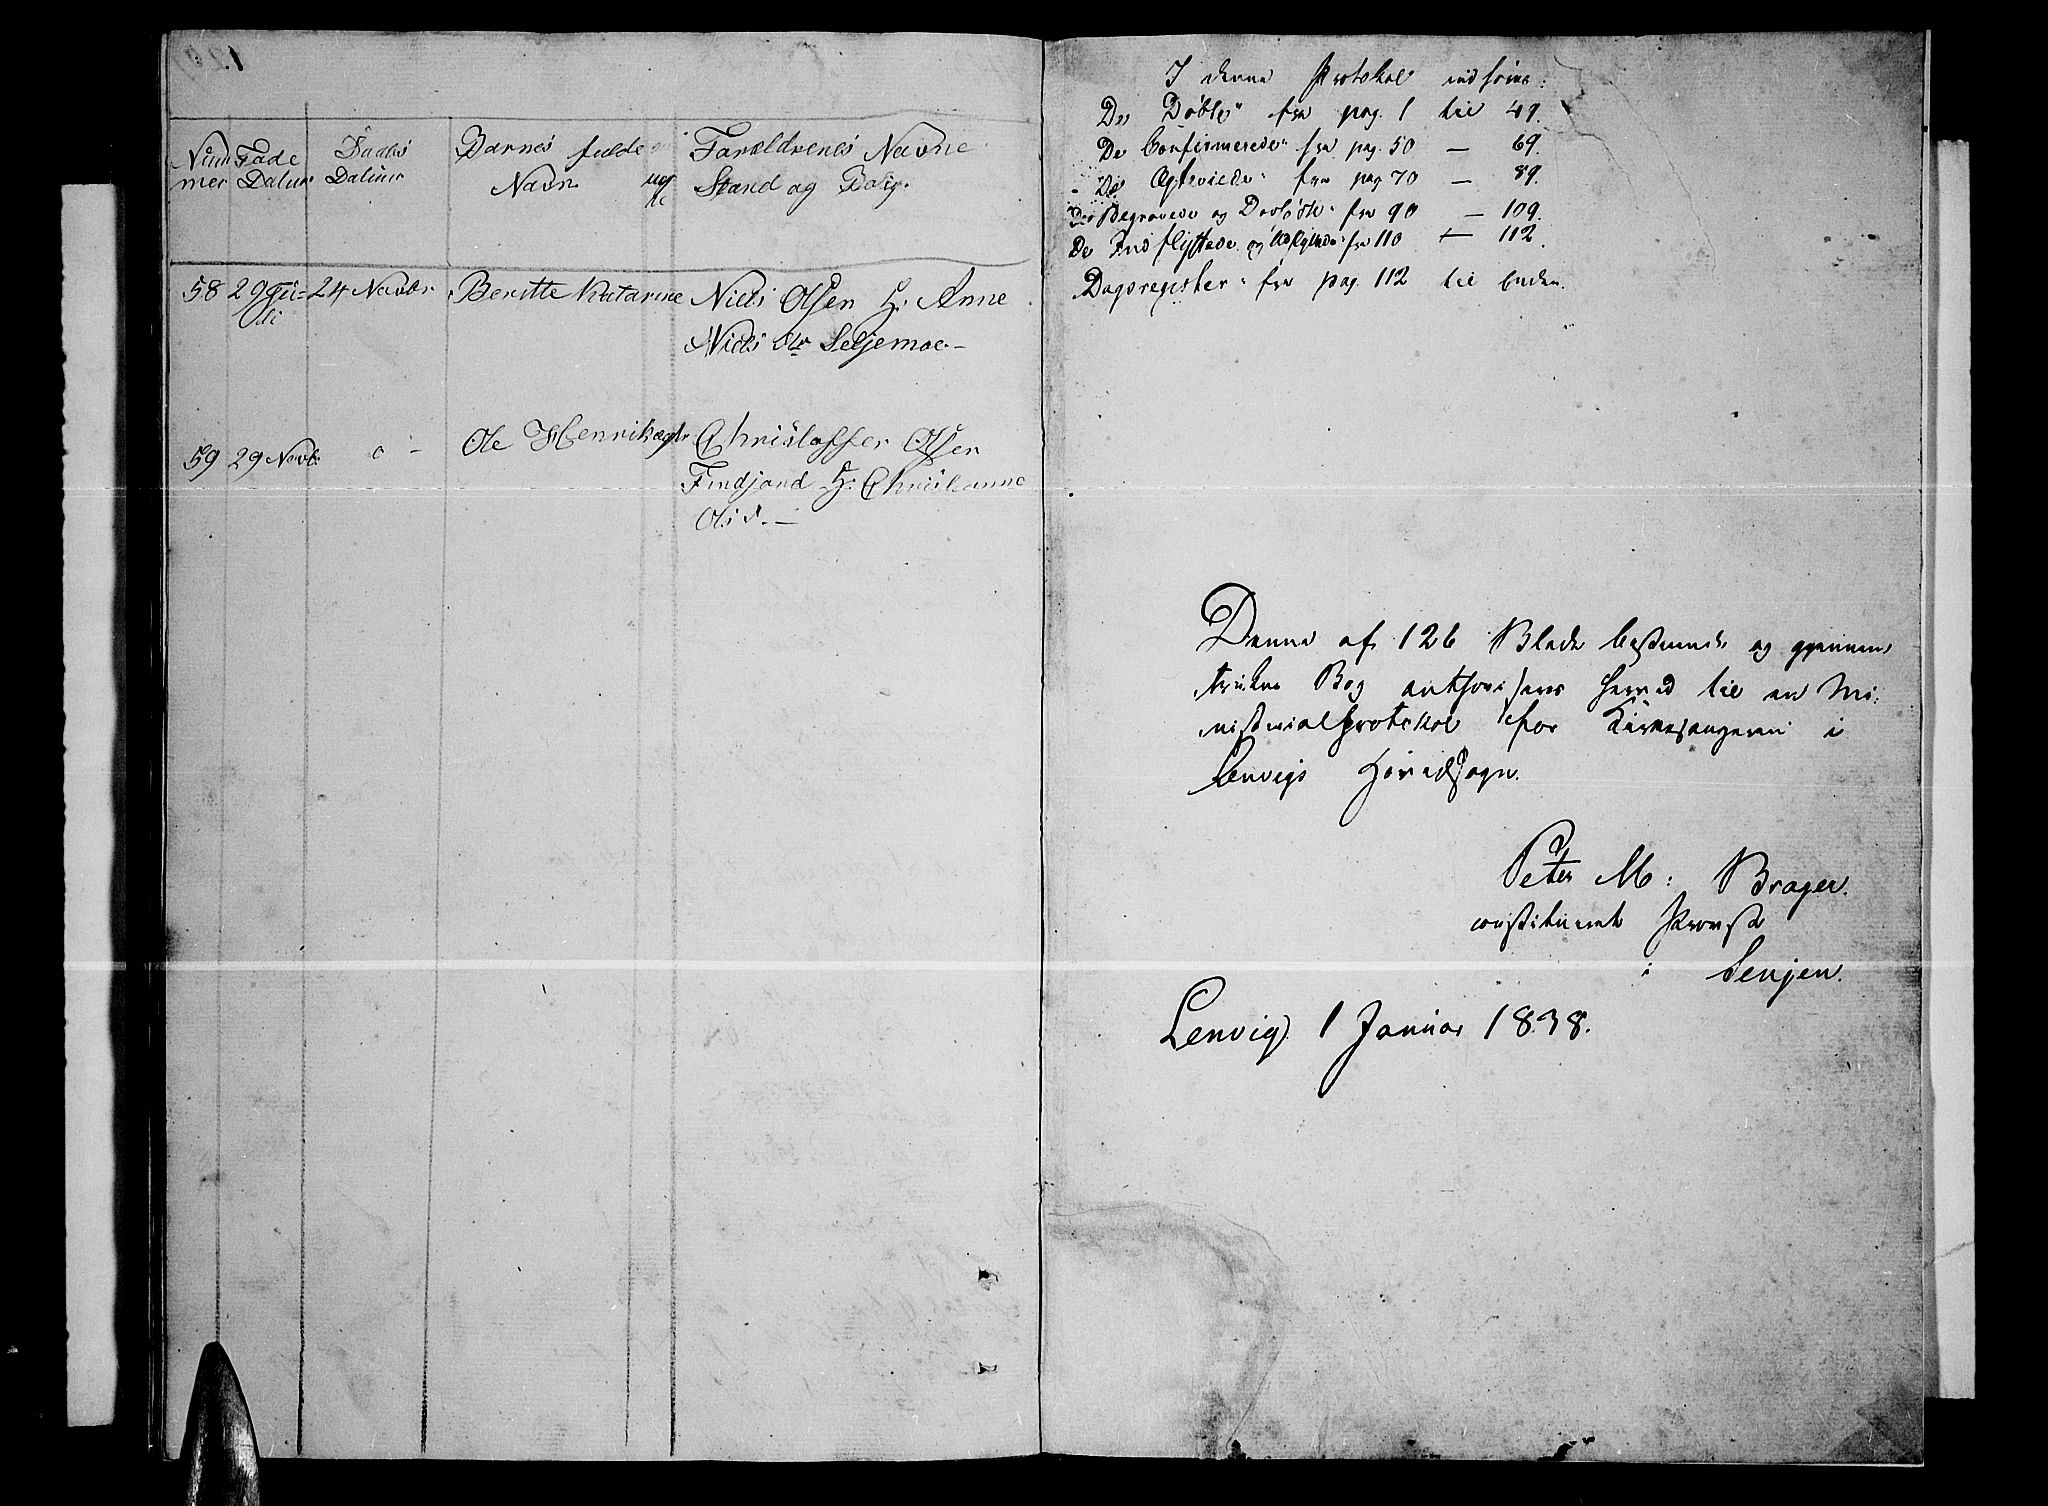 Num
mer
Føde
Datum
Daabs
Datum
Barnes fulde
Navn
Forældrenes Navne
Stand og Bolig.
58 29 Juli 24 Novbr Beritte Katarine Niels Olsen H: Anne
Niels Dtr Seljemoe.-
59 29 Novb. Ole Henrik ægte Christoffer Olsen
Findjord H: Christianne
Ols d. -
I denne Protokol indføres:
De Døbte fra pag. 1 til 49.
De Confirmerede fra pag. 50 — 69.
De Egteviede fra pag 70 — 89.
De Begravede og Dødfødte fra 90 — 109.
De Indflyttede og Udflyttede fra 110 — 112.
Dagsregister fra pag. 112 til Enden.
Denne af 126 Blade bestaaende og gjennem-
trukne Bog authoriseres herved til en Mi-
nisterialprotokol for Kirkesangeren i
Lenvigs Hovedsogn.
Peter M: Brager.
constitueret Provst
i Senjen.
Lenvig 1 Januar 1838.